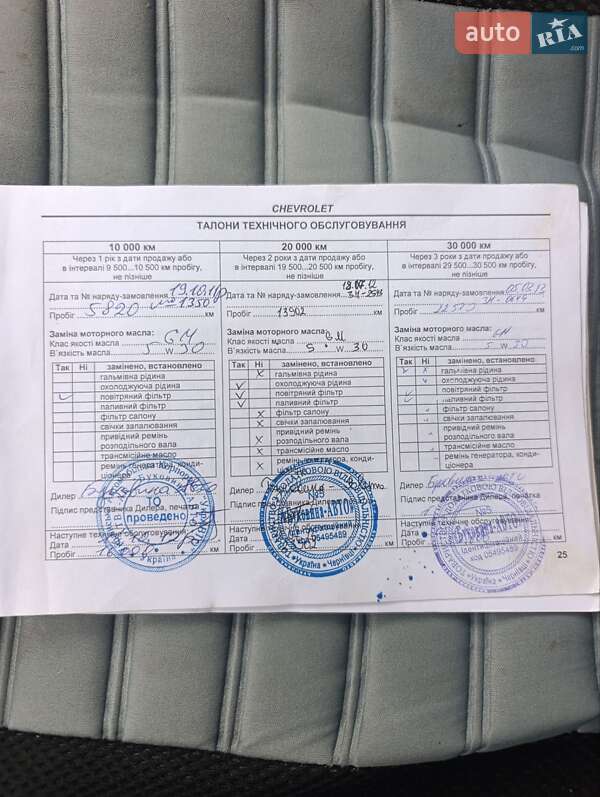 auto RIA .com
CHEVROLET
ТАЛОНИ ТЕХНІЧНОГО ОБСЛУГОВУВАННЯ
10 000 км
Через 1 рік з дати продажу або
в інтервалі 9 500...10 500 км пробігу,
не пізніше
Дата та № наряду-замовлення 19.10.11р
№ 1350
Пробіг 5820 км
Заміна моторного масла:
Клас якості масла GM
В`язкість масла 5 W 30
Так Ні замінено, встановлено
гальмівна рідина
охолоджуюча рідина
повітряний фільтр
паливний фільтр
фільтр салону
свічки запалювання
привідний ремінь
розподільного вала
трансмісійне масло
ремінь генератора, конди-
ціонера
Дилер
Підпис представника Дилера, печатка
проведено
Україна
Наступне технічне обслуговування:
Дата
Пробіг
20 000 км
Через 2 роки з дати продажу або
в інтервалі 19 500...20 500 км пробігу,
не пізніше
18.07.12
Дата та № наряду-замовлення
Пробіг 13902 км
Заміна моторного масла:
Клас якості масла GM
В`язкість масла 5 W 30
Так Ні замінено, встановлено
гальмівна рідина
охолоджуюча рідина
повітряний фільтр
паливний фільтр
фільтр салону
свічки запалювання
привідний ремінь
розподільного вала
трансмісійне масло
ремінь генератора, конди-
ціонера
Дилер
№5
Підпис представника Дилера
Ідентифікаційний
код 05495489
Україна * Чернівці
Наступне технічне
Дата
Пробіг
км
30 000 км
Через 3 роки з дати продажу або
в інтервалі 29 500...30 500 км пробігу,
не пізніше
Дата та № наряду-замовлення
Пробіг км
Заміна моторного масла:
Клас якості масла GM
В`язкість масла 5 W 30
Так Ні замінено, встановлено
гальмівна рідина
охолоджуюча рідина
повітряний фільтр
паливний фільтр
фільтр салону
свічки запалювання
привідний ремінь
розподільного вала
трансмісійне масло
ремінь генератора, конди-
ціонера
Дилер
Підпис представника Дилера, печатка
№5
Ідентифікаційний
код 05495489
Україна * Чернівці
Наступне технічне обслуговування:
Дата
Пробіг
км
25